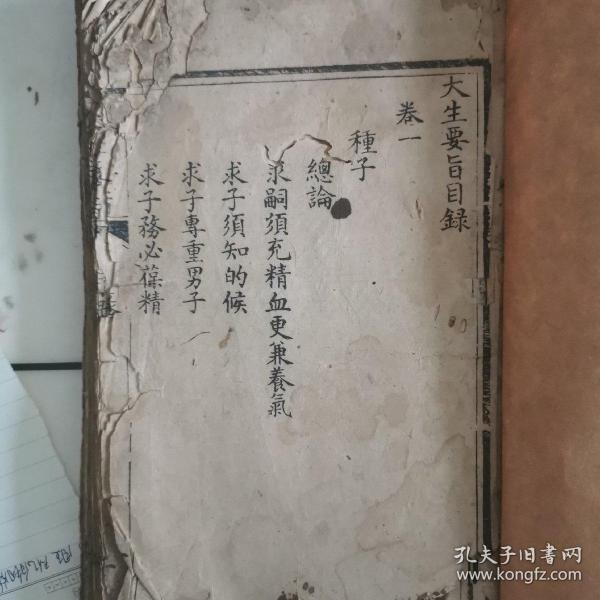 大生要旨目録
卷一
種子
總論
求嗣須充精血更兼養氣
求子須知的候
求子專重男子
求子務必葆精
孔夫子旧书网
www.kongfz.com